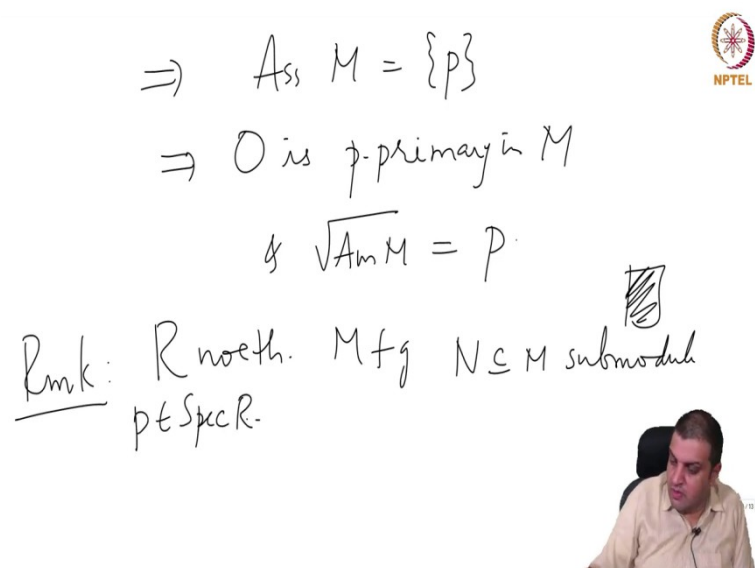 NPTEL
⇒ Ass M = {p}
⇒ 0 is p-primary in M
& √Ann M = p.
Rmk: R noeth. M fg N ⊆ M submodule
p ∈ Spec R.